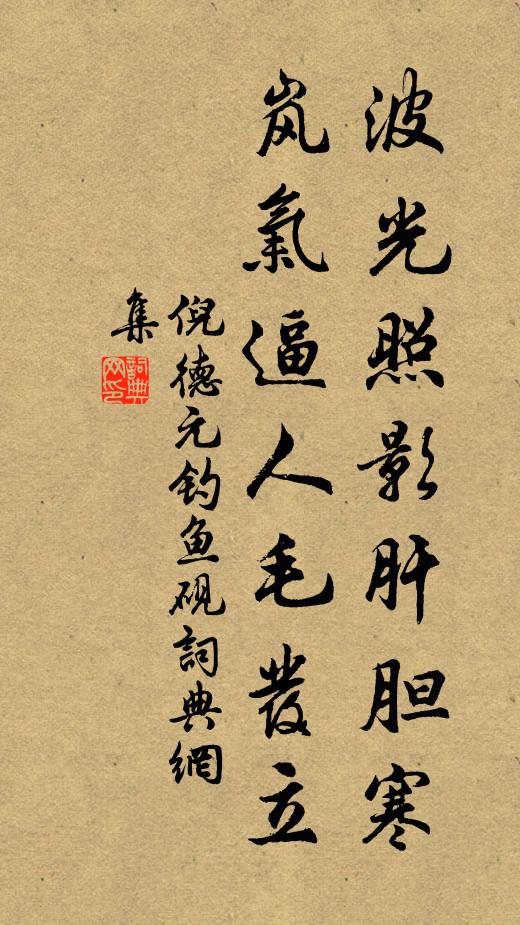 波光照影肝胆寒
岚氣逼人毛發立
倪德元钓鱼砚詞典網
集
詞典网印